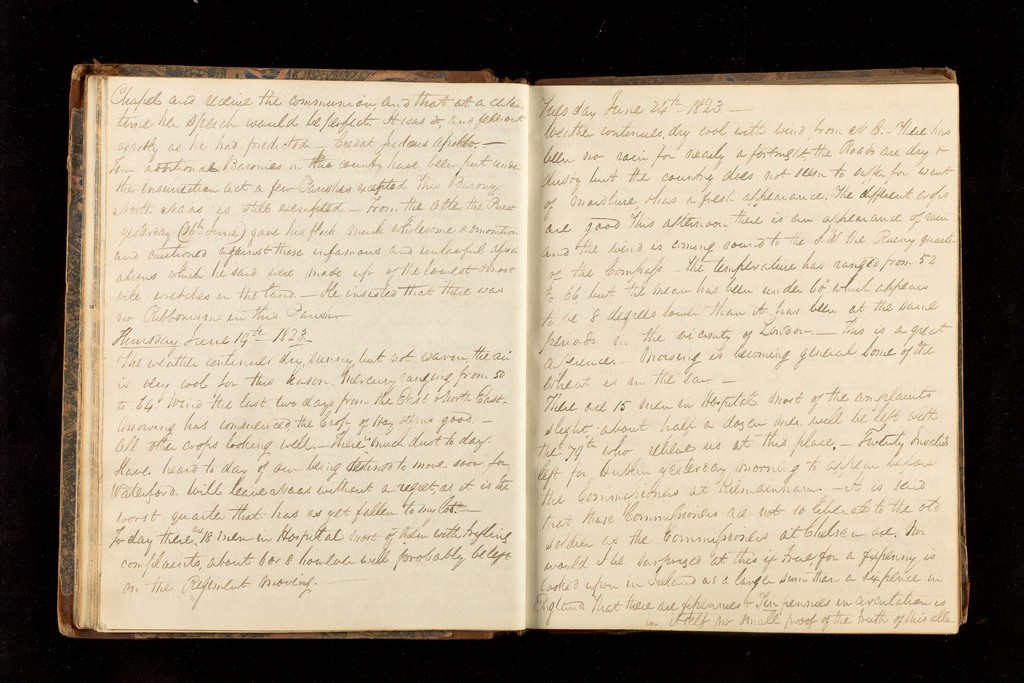 Chapel and receive the communion, and that at a certain
time her speech would be perfect. It was so, and fell out
exactly as he had predicted — Credat Judaeus Apella. —
Four additional Baronies in this county have been put under
the insurrection act a few Parishes excepted This Barony
North Naas is still exempted — From the Alter the Priest
yesterday (16th June) gave his flock much wholesome admonition
and cautioned against these infamous and unlawful associ
ations which he said were made up of the lowest & most
vile wretches in the land — He insisted that there was
no Ribbonism in this Parish
Thursday June 19th 1823
The weather continues dry, sunny, but not warm, the air
is very cool for this season. Mercury ranging from 50
to 64. Wind the last two days from the East & North East —
Mowing has commenced, the Crop of Hay seems good. —
All other crops looking well. — There is much dust to day.
Have heard to day of our being destined to move soon for
Waterford. Will leave Naas without a regret, as it is the
worst quarter that has as yet fallen to my lot. —
To day there are 18 men in Hospital most of them with trifling
complaints, about 6 or 8 however will probably be left
on the Regiment moving. —
Tuesday June 24th 1823 —
Weather continues, dry cool with wind from N.E. — There has
been no rain for nearly a fortnight, the Roads are dry &
dusty but the country does not seem to suffer for want
of moisture & has a fresh appearance. The different crops
are good This afternoon there is an appearance of rain
and the wind is coming round to the S.W. the Rainy quarter
of the Compass. — The temperature has ranged from 52
to 66, but the mean has been under 60 which appears
to be 8 degrees lower than it has been at the same
periods in the vicinity of London. — This is a great
difference. Mowing is becoming general Some of the
Wheat is in the ear —
There are 15 men in Hospital most of the complaints
slight about half a dozen men will be left with
the 79th who relieve us at this place. — Twenty Invalids
left for Dublin yesterday morning to appear before
the Commissioners at Kilmainham. — It is said
that these Commissioners are not so liberal to the old
soldier as the Commissioners at Chelsea are. Nor
would I be surprized at this if true, for a fippenny is
looked upon in Ireland as a larger sum than a sixpence in
England That there are fipennies & Tinpennies in circulation is
in itself no small proof of the truth of this alle